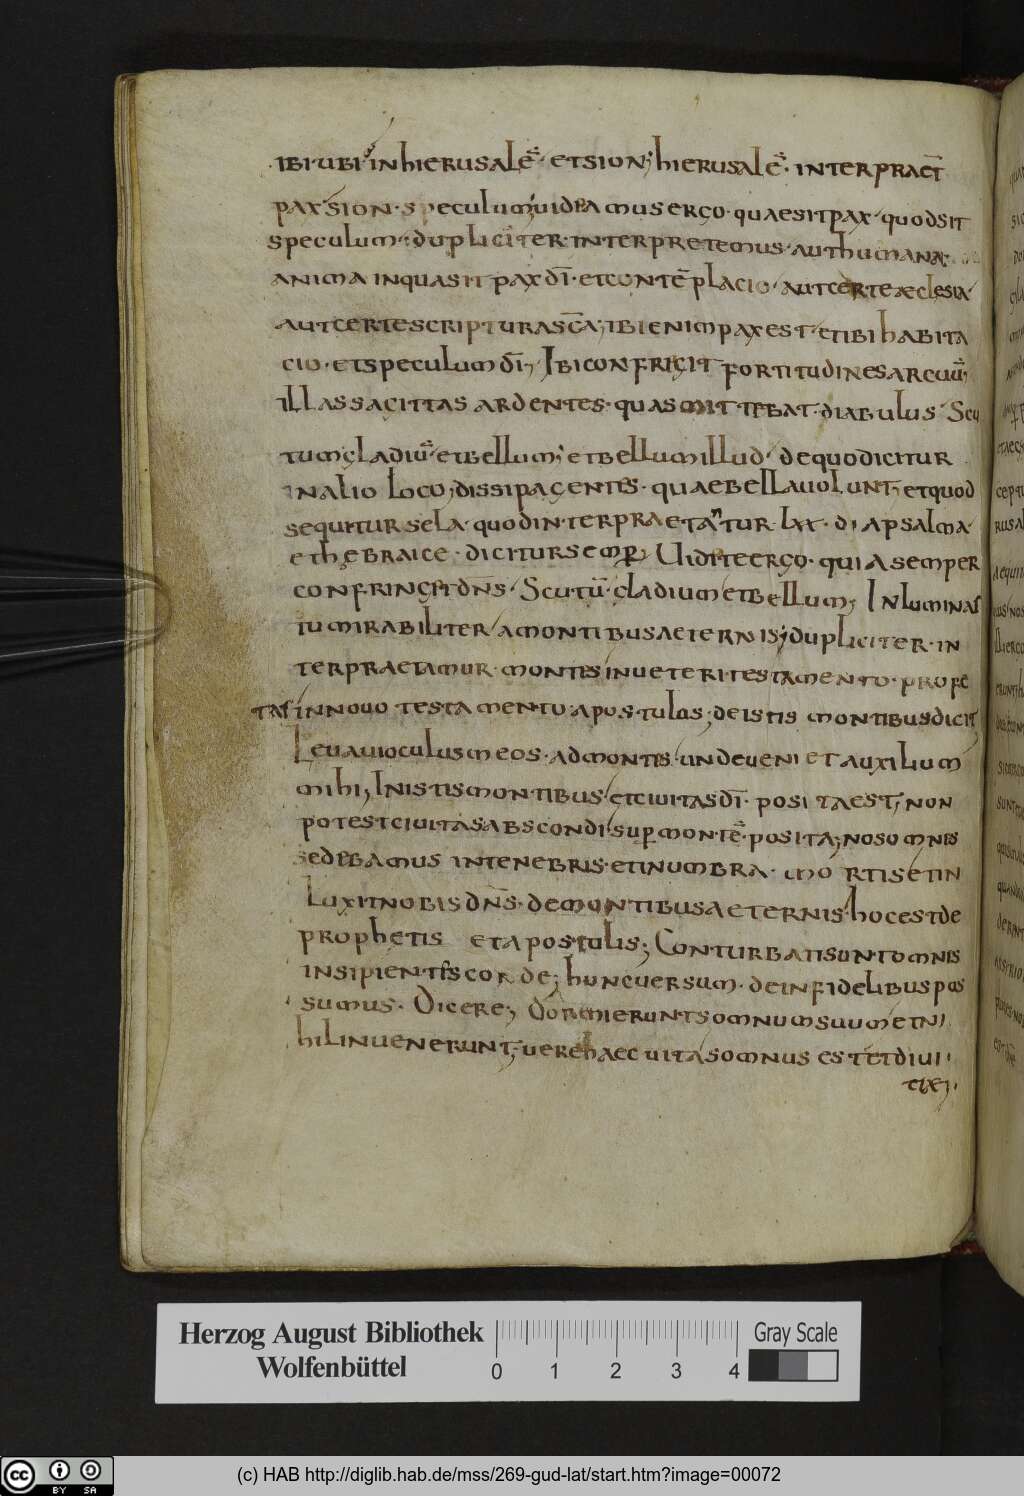 ibi ubi in hierusalē· et sion; hierusalē· interpraet̄
pax sion· speculum; uideamus ergo· quae sit pax· quod sit
speculum· dupliciter· interpretemus· aut humana·
anima in qua sit pax dī· et contēplacio· aut certe aeclesia·
aut certe scriptura sc̄a; ibi enim pax est· et ibi habita
cio· et speculum dī; Ibi confrigit fortitudines arcuū;
illas sagittas ardentes· quas mittebat· diabulus· Scu
tum gladiū· et bellum; et bellum illud· de quo dicitur
in alio loco; dissipa gentes· quae bella uolunt; et quod
sequitur sela· quod interpraetantur lxx· diapsalma·
et hebraice· dicitur semp̄; Uidete ergo· qui a semper
confringet dn̄s· Scutū· gladium et bellum; Inluminas
tu mirabiliter a montibus aeternis; dupliciter· in
terpraetamur· montes in ueteri testamento· profe
tas in nouo testamento· apostulos; de istis montibus dicit;
Leuaui oculus meos· ad montis· unde ueniet auxilium
mihi; In istis montibus· et ciuitas dī· posita est; non
potest ciuitas abscondi sup̄ montē· posita; nos omnis
sedebamus in tenebris· et in umbra· mortis et in
luxit nobis dn̄s· de montibus aeternis· hoc est de
prophetis et apostulis; Conturbati sunt omnis
insipientes corde; hunc uersum· de infidelibus pos
sumus· Dicere; Dormierunt somnum suum et ni
hil inuenerunt; uere haec uita somnus est et diui
tiae;·
Herzog August Bibliothek
Wolfenbüttel
0 1 2 3 4
Gray Scale
(c) HAB http://diglib.hab.de/mss/269-gud-lat/start.htm?image=00072
cc BY SA